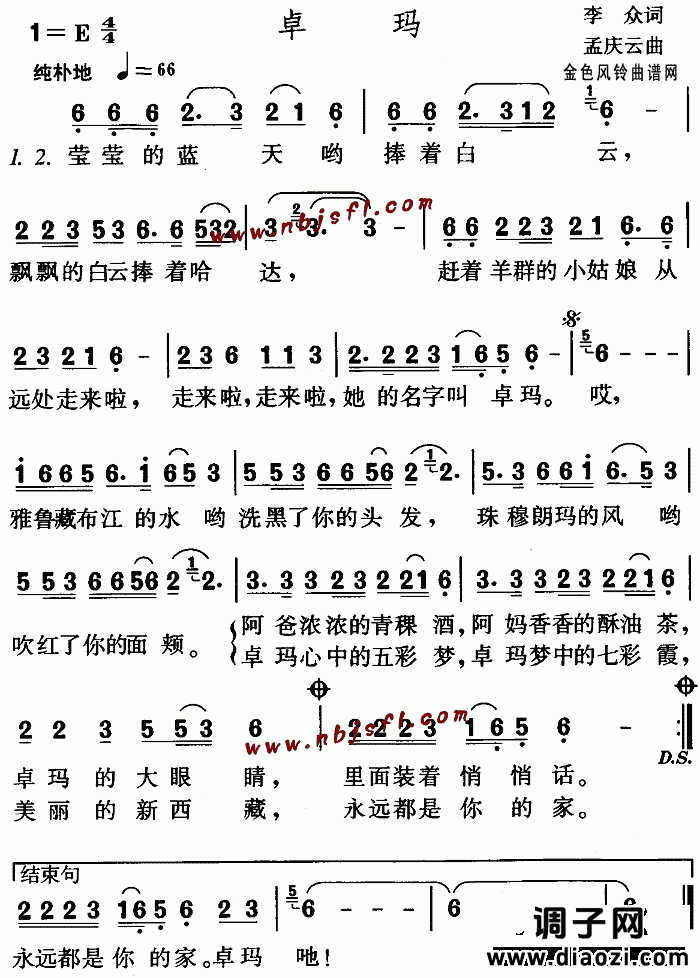 卓 玛
1=E 4/4
李 众词
孟庆云曲
纯朴地 ♩=66
金色风铃曲谱网
6 6 6 2. 3 2 1 6 | 6 6 2. 3 1 2 1 6 - |
1. 2. 莹莹的蓝 天哟 捧着白 云,
www.nbjsfl.com
2 2 3 5 3 6. 6 5 3 2 | 3 2 3. 3 - | 6 6 2 2 3 2 1 6. 6 |
飘飘的白云捧着哈 达, 赶着羊群的小姑娘从
2 3 2 1 6 - | 2 3 6 1 1 3 | 2. 2 2 3 1 6 5 6 - | 5 6 - |
远处走来啦, 走来啦,走来啦,她 的名字叫 卓玛。 哎,
1 6 6 5 6. 1 6 5 3 | 5 5 3 6 6 5 6 2 1 2. | 5. 3 6 6 1 6. 5 3 |
雅鲁藏布江的水 哟 洗黑了你的头 发, 珠穆朗玛的风 哟
5 5 3 6 6 5 6 2 1 2. | 3. 3 3 2 3 2 2 1 6 | 3. 3 3 2 3 2 1 6 |
吹红了你的面 颊。 阿 爸浓浓的青稞 酒,阿 妈香香的酥油 茶,
卓 玛心中的五彩 梦,卓 玛梦中的七彩 霞,
2 2 3 5 5 3 6 | 2 2 2 3 1 6 5 6 - :|
www.nbjsfl.com
D.S.
卓 玛 的 大眼 睛, 里面装着 悄悄话。
美 丽 的 新西 藏, 永远都是 你 的家。
结束句
2 2 2 3 1 6 5 6 2 3 | 5 6 - - - | 6 - - - | 6
永远都是 你 的 家。卓玛 吔!
调子网
www.diaozi.com